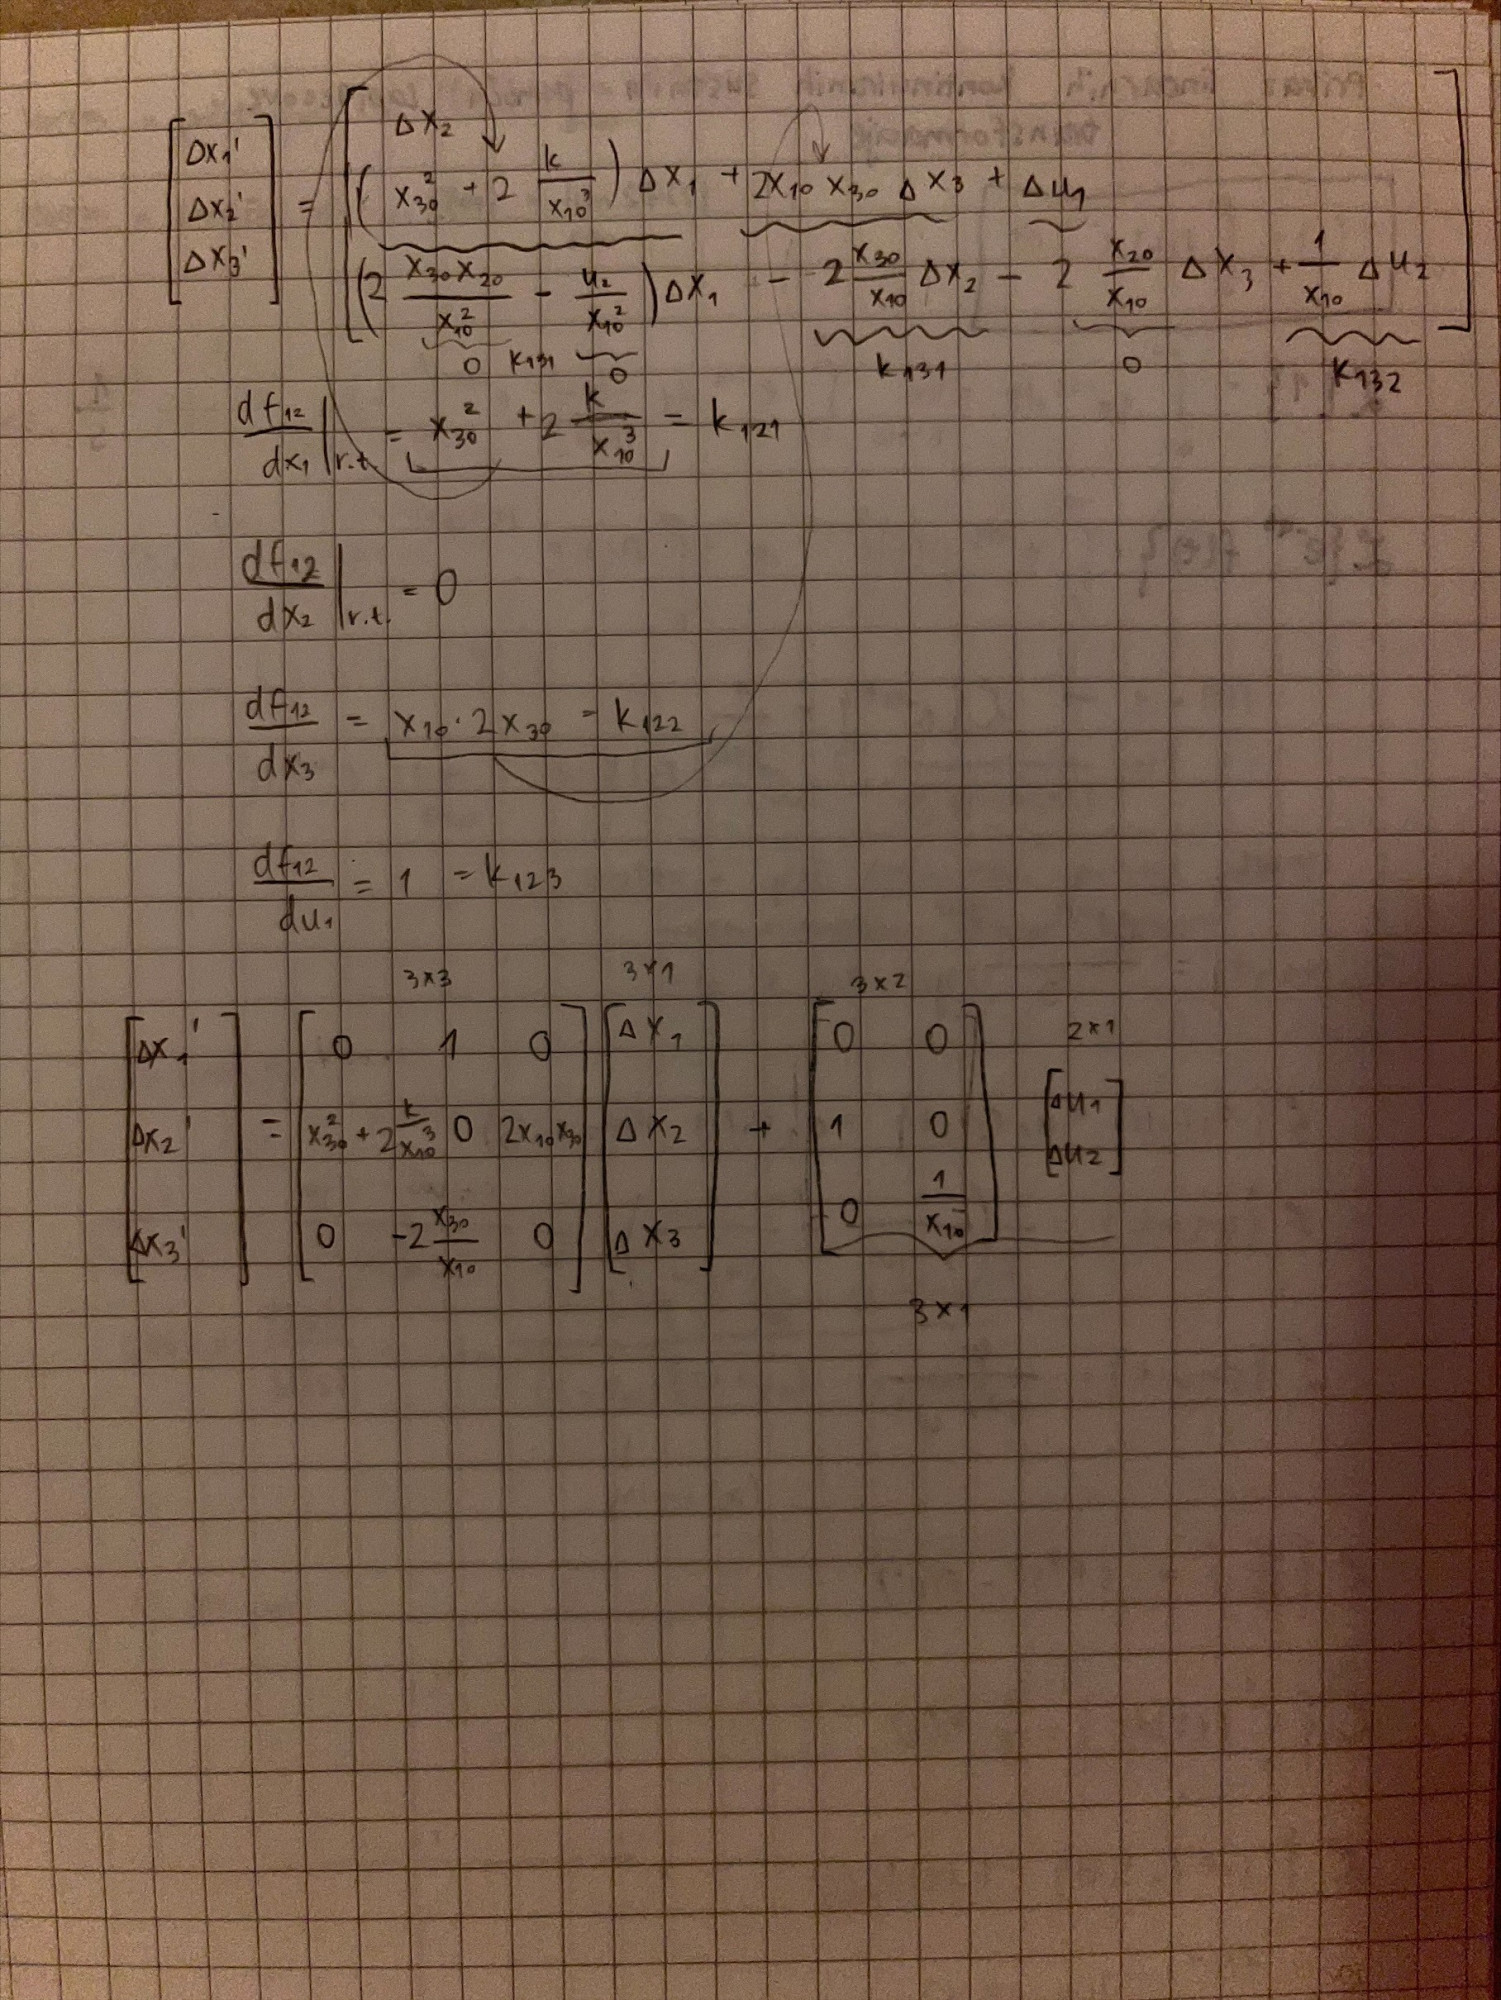 [Δx₁' Δx₂' Δx₃'] = [Δx₂
(x₃₀² + 2 k/x₁₀³) Δx₁ + 2x₁₀ x₃₀ Δx₃ + Δu₁
(2 x₃₀x₂₀/x₁₀² - u₂/x₁₀²) Δx₁ - 2 x₃₀/x₁₀ Δx₂ - 2 x₂₀/x₁₀ Δx₃ + 1/x₁₀ Δu₂]
0 k₁₃₁ 0 k₁₃₁ 0 k₁₃₂
df₁₂/dx₁ |r.t. = x₃₀² + 2 k/x₁₀³ = k₁₂₁
df₁₂/dx₂ |r.t. = 0
df₁₂/dx₃ = x₁₀ · 2x₃₀ = k₁₂₂
df₁₂/du₁ = 1 = k₁₂₃
3x3 3x1 3x2
2x1
[Δx₁' Δx₂' Δx₃'] = [0 1 0
x₃₀² + 2 k/x₁₀³ 0 2x₁₀x₃₀
0 -2 x₃₀/x₁₀ 0] [Δx₁ Δx₂ Δx₃] + [0 0
1 0
0 1/x₁₀] [Δu₁ Δu₂]
3x1